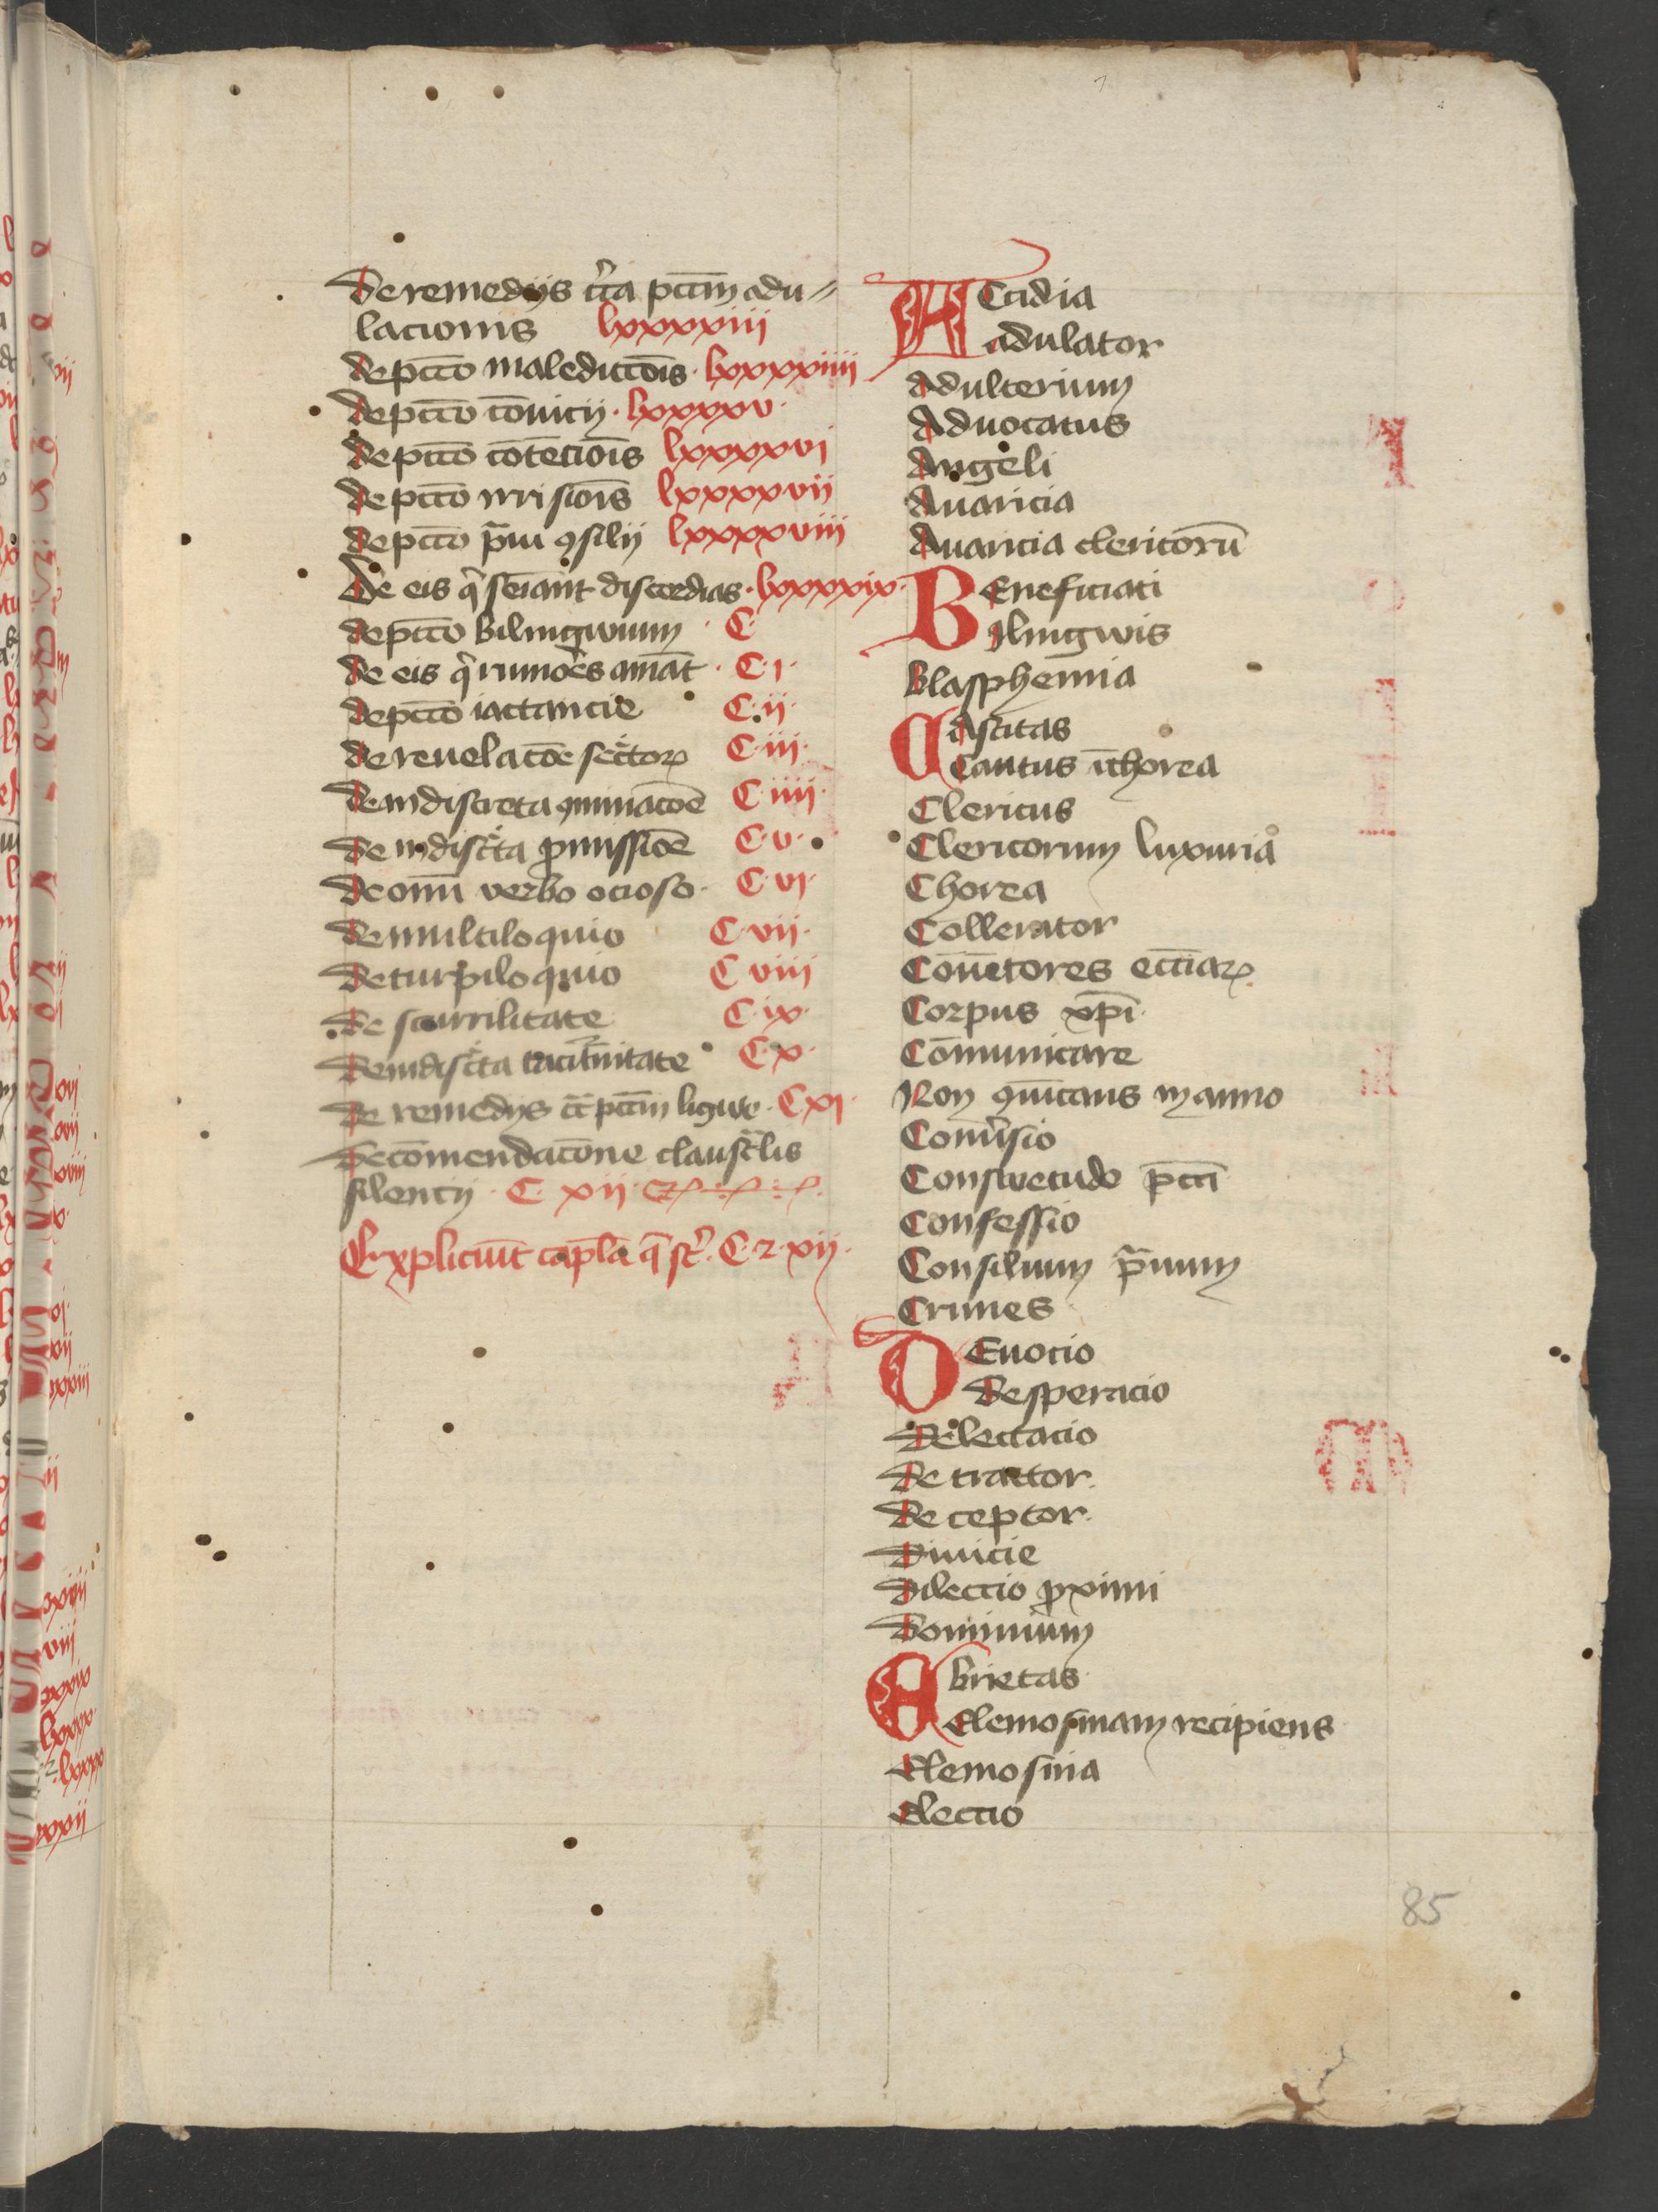 De remedijs cͬa pctm̄ adu=
lacionis lxxxxiii
De pctō maledictōis · lxxxxiiii
De pctō cōuicij · lxxxxv ·
De pctō cōtēciōis lxxxxvi
De pctō irrisiōis lxxxxvii
De pctō p̄ui ꝯsilij lxxxxviii
De eis qͥ seīant discordias · lxxxxix ·
De pctō Bilingwium · C
De eis qͥ rumores amāt · C · i ·
De pctō iactancie C · ii ·
De reuelacōe secͤtoꝝ C · iii ·
De indiscreta ꝯminacōe C · iiii ·
De indiscͤta ꝓmissiōe C · v ·
De omī verbo ocioso · C · vi ·
De multiloquio C · vii ·
De turpiloquio C viii
De scurrilitate C · ix ·
De indiscͤta tacit̾nitate C · x ·
De remedijs cͣ pctm̄ ligwe · Cxi ·
De cōmendacōne claustͣlis
silencij · C · xii ·
Expliciūt capl̄a q̄ st̾ · C · 2 · xij ·
ACcidia
adulator
Adulterium
Aduocatus
Angeli
Auaricia
Auaricia clericorū
BEneficiati
Bilingwis
Blasphemia
CAstitas
Cantus ī chorea
Clericus
Clericorum luxuria
Chorea
Collerator
Cōuētores eccīaꝝ
Corpus xp̄i
Cōmunicare
Non ꝯīcans in anno
Conuͬsio
Conswetudo pctī
Confessio
Consilium p̄uum
Crines
DEuocio
desperacio
Delectacio
Detractor
Deceptor
Diuicie
Dilectio ꝓximi
Dominium
Ebrietas
Elemosinam recipiens
Elemosina
Electio
85